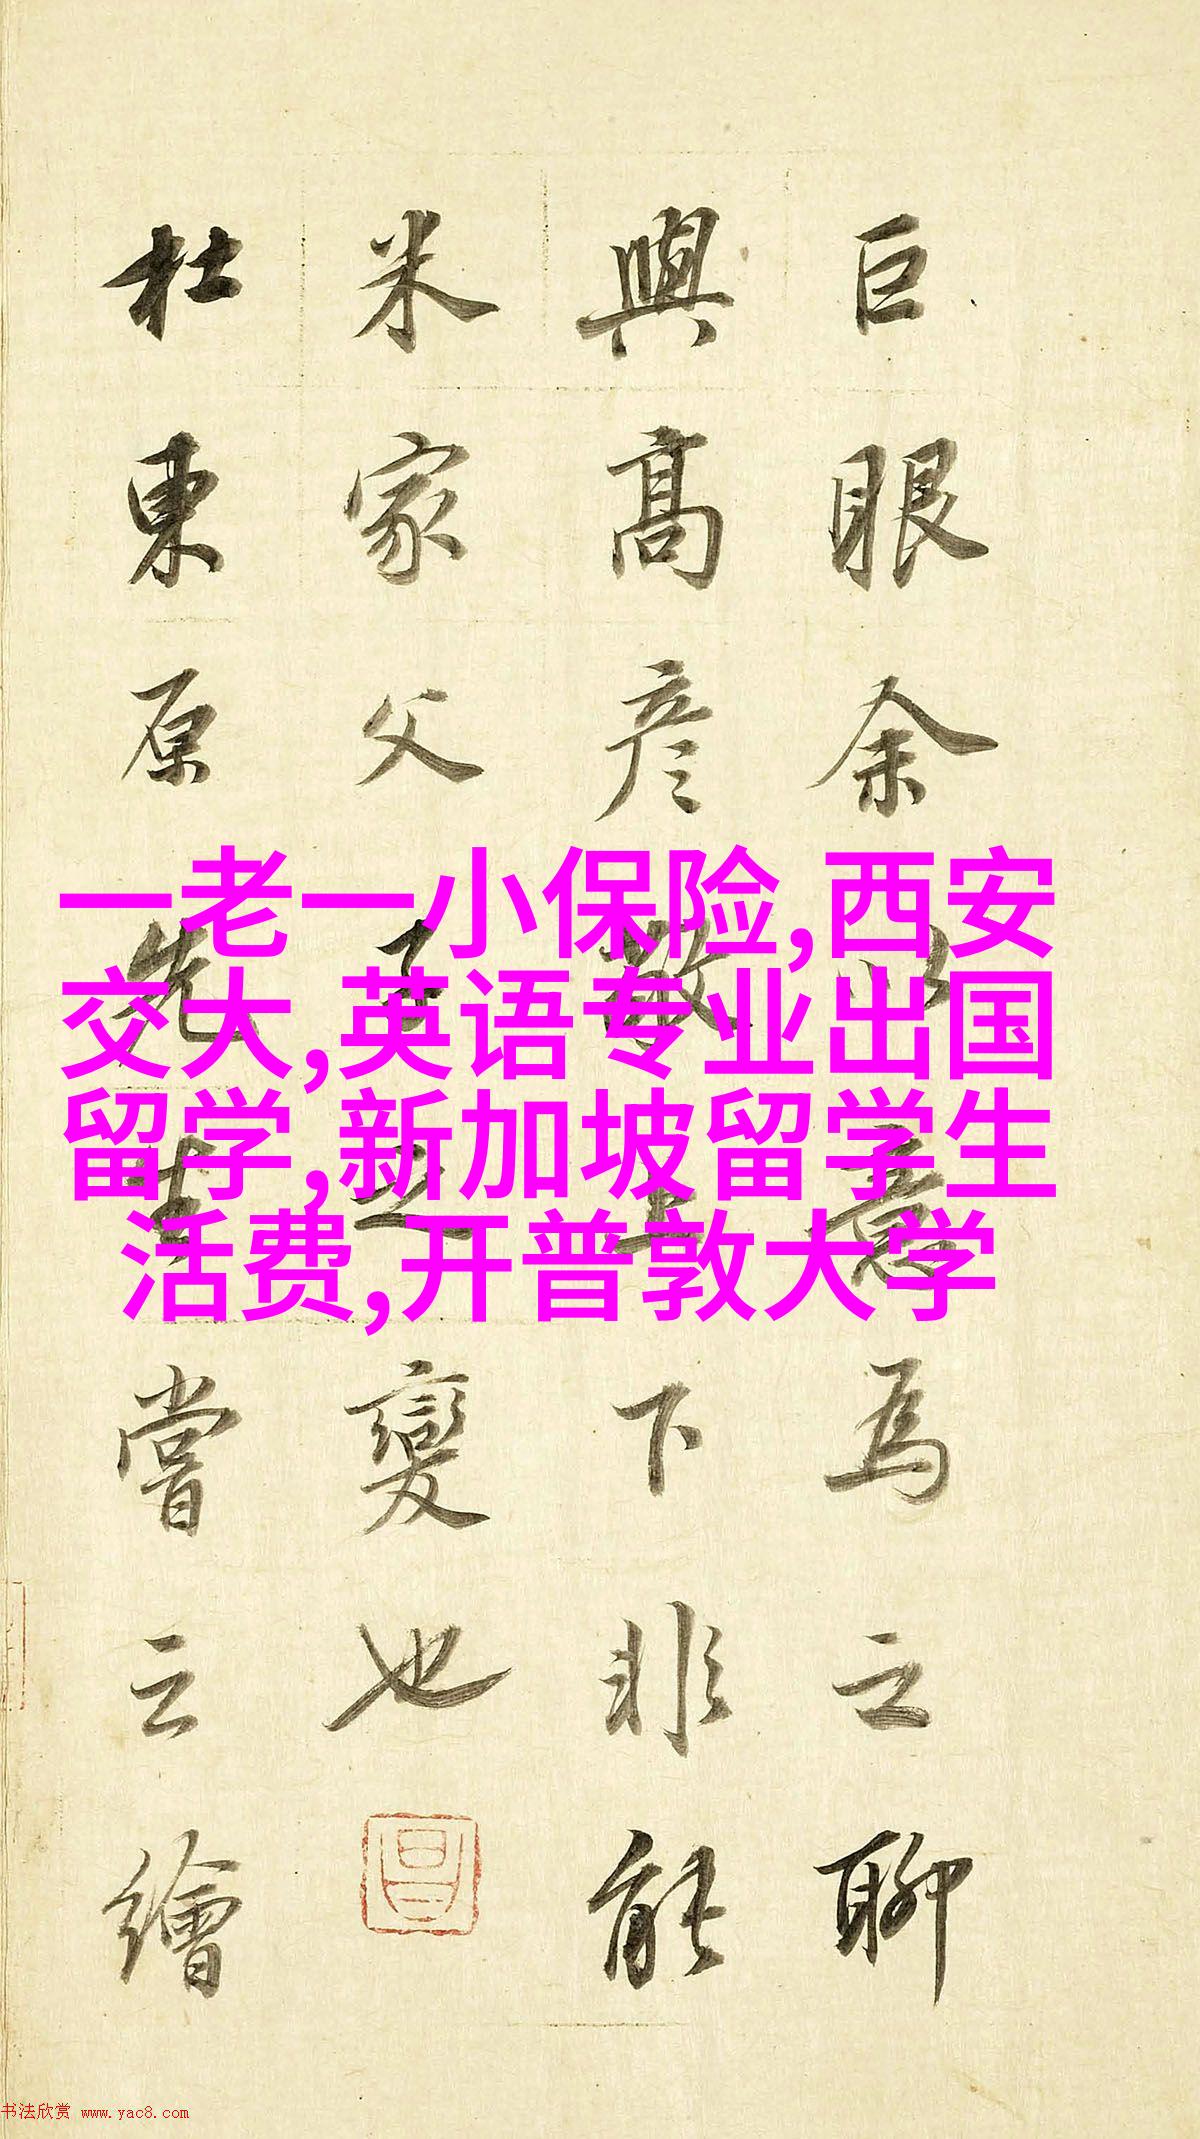 巨眼余以意為之聊
與高彦敬上下非能
米家父子之變也
杜東原先生嘗云繪
一老一小保险,西安
交大,英语专业出国
留学,新加坡留学生
活费,开普敦大学
书法欣赏 www.yac8.com